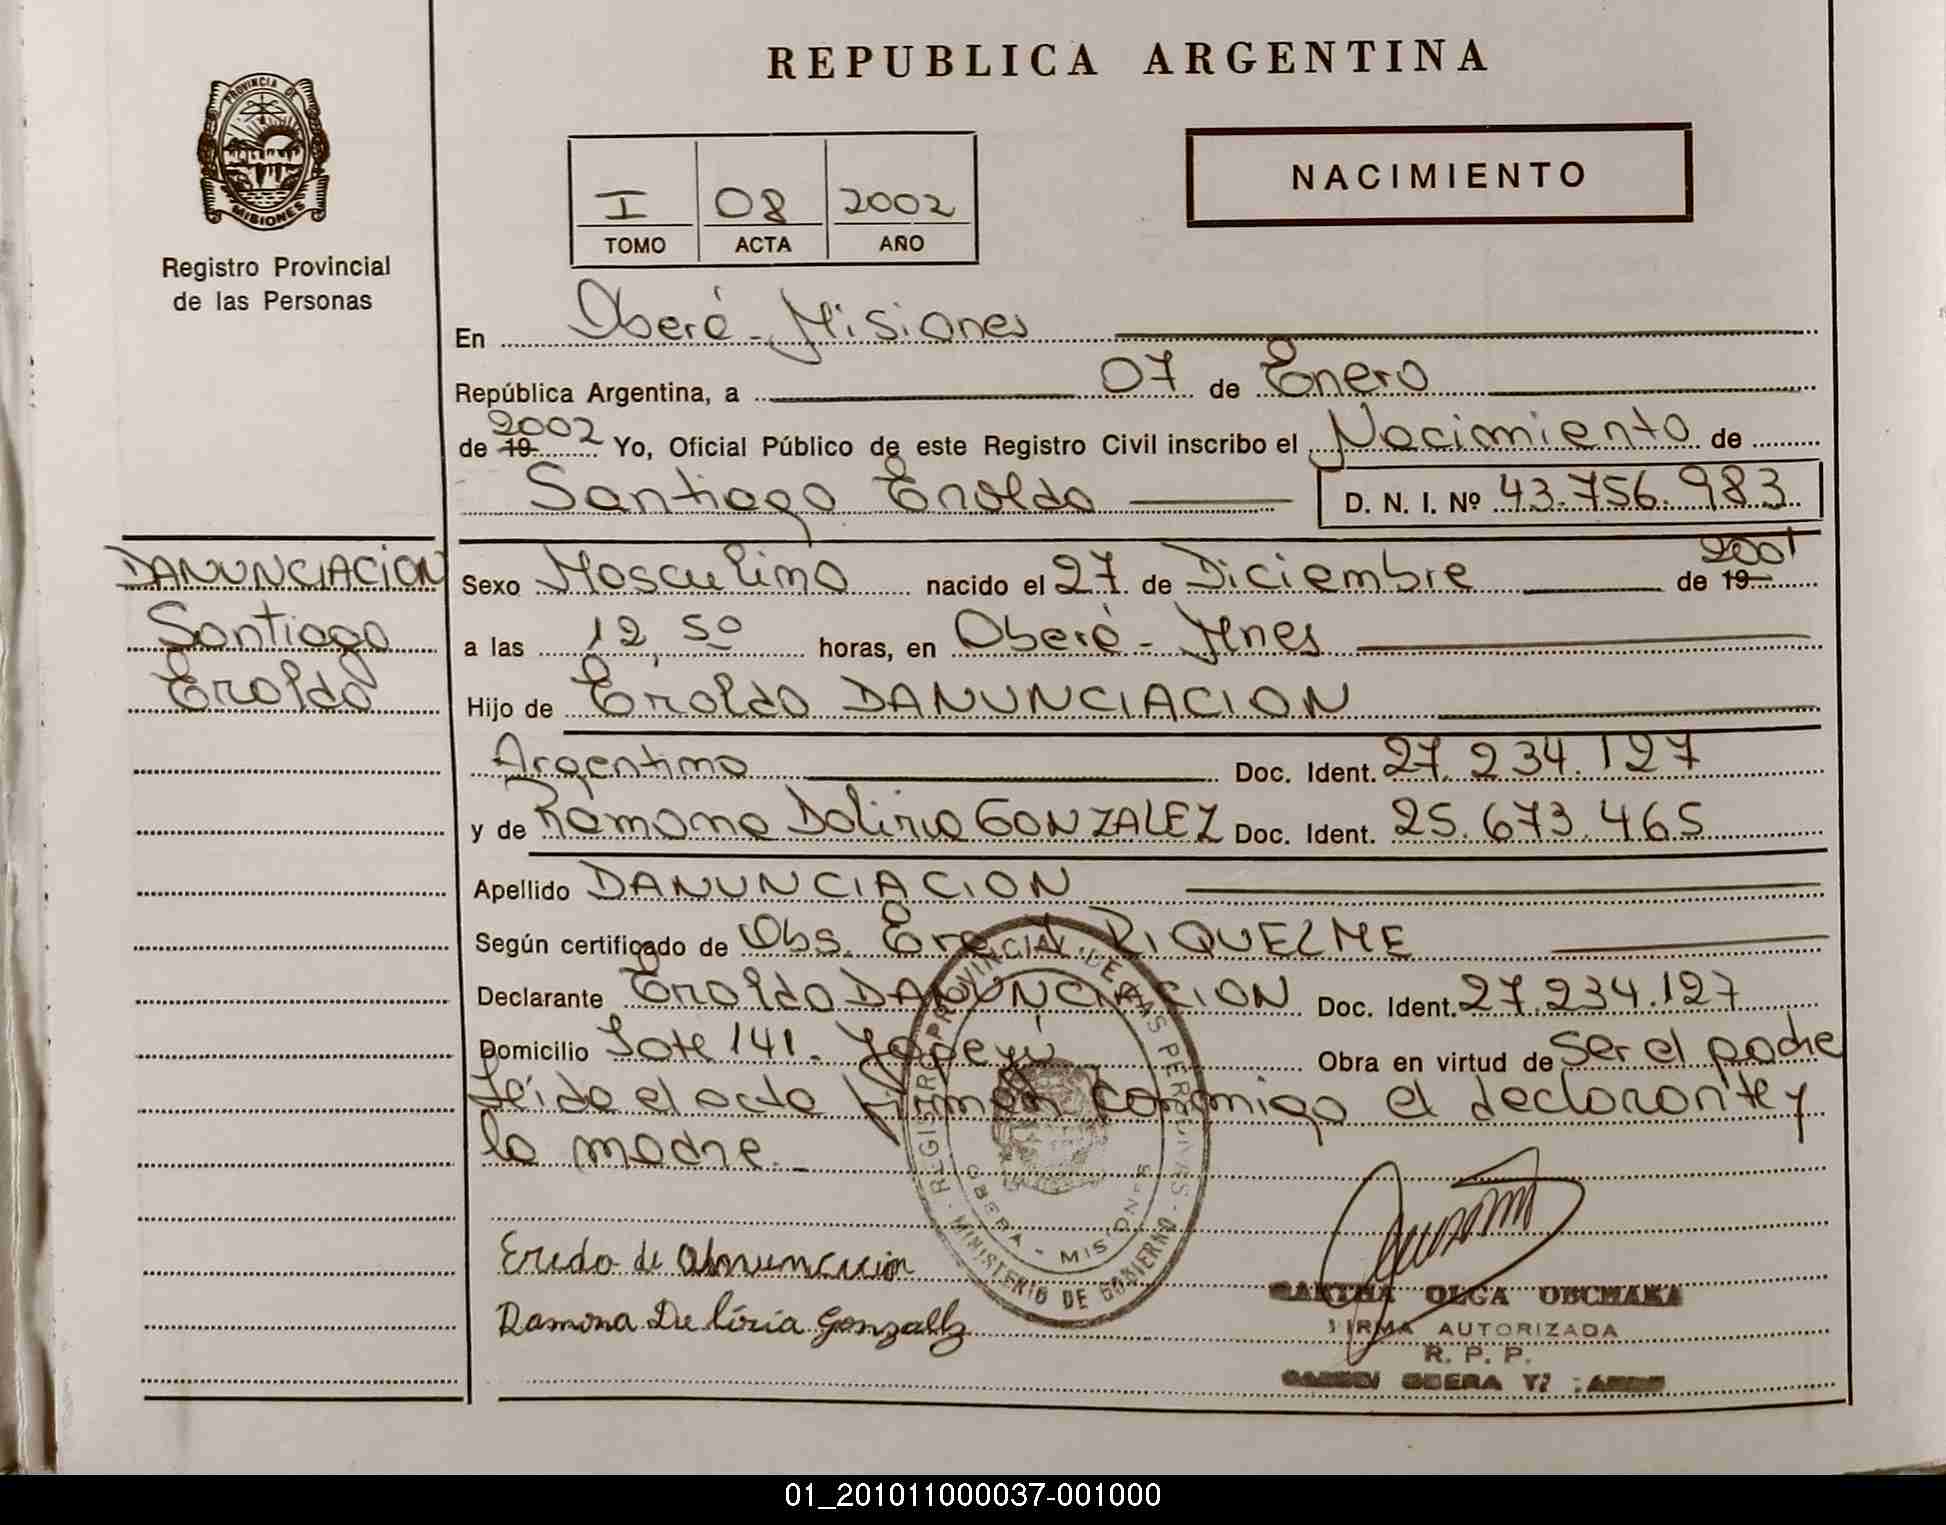 REPUBLICA ARGENTINA
PROVINCIA DE
MISIONES
Registro Provincial
de las Personas
I 08 2002
TOMO ACTA AÑO
NACIMIENTO
En Oberá - Misiones
República Argentina, a 07 de Enero
de 19 2002 Yo, Oficial Público de este Registro Civil inscribo el Nacimiento de
Santiago Eroldo D. N. I. Nº 43.756.983
DANUNCIACION
Santiago
Eroldo
Sexo Masculino nacido el 27 de Diciembre de 19 2001
a las 12,50 horas, en Oberá - Mnes
Hijo de Eroldo DANUNCIACION
Argentino Doc. Ident. 27.234.127
y de Ramona Doliria GONZALEZ Doc. Ident. 25.673.465
Apellido DANUNCIACION
Según certificado de Obs. RIQUELME
Declarante Eroldo DANUNCIACION Doc. Ident. 27.234.127
Domicilio Lote 141 - Yapeyú Obra en virtud de ser el padre
Leída el acta firman conmigo el declarante y
la madre.
REGISTRO PROVINCIAL DE LAS PERSONAS
OBERA - MISIONES
MINISTERIO DE GOBIERNO
Eredo de
Ramona De liria Gonzallz
OLGA
FIRMA AUTORIZADA
R. P. P.
OBERA
01_201011000037-001000